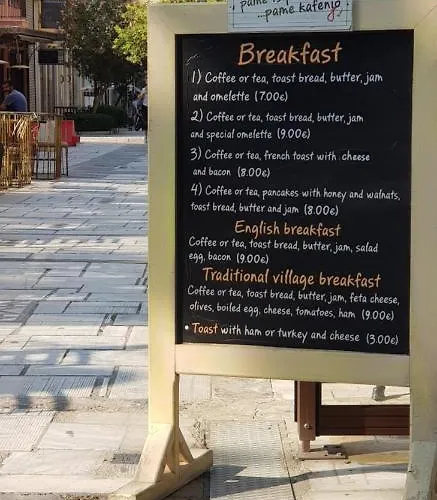 pame
...pame kafenio
Breakfast
1) Coffee or tea, toast bread, butter, jam
and omelette (7.00€)
2) Coffee or tea, toast bread, butter, jam
and special omelette (9.00€)
3) Coffee or tea, french toast with cheese
and bacon (8.00€)
4) Coffee or tea, pancakes with honey and walnats,
toast bread, butter and jam (8.00€)
English breakfast
Coffee or tea, toast bread, butter, jam, salad
egg, bacon (9.00€)
Traditional village breakfast
Coffee or tea, toast bread, butter, jam, feta cheese,
olives, boiled egg, cheese, tomatoes, ham (9.00€)
• Toast with ham or turkey and cheese (3.00€)